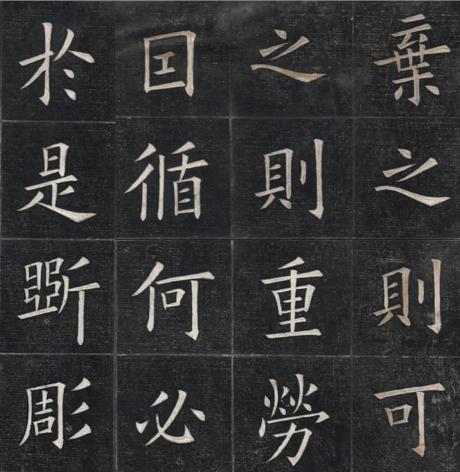 棄之則可
之則重勞
囙循何必
於是斲彫